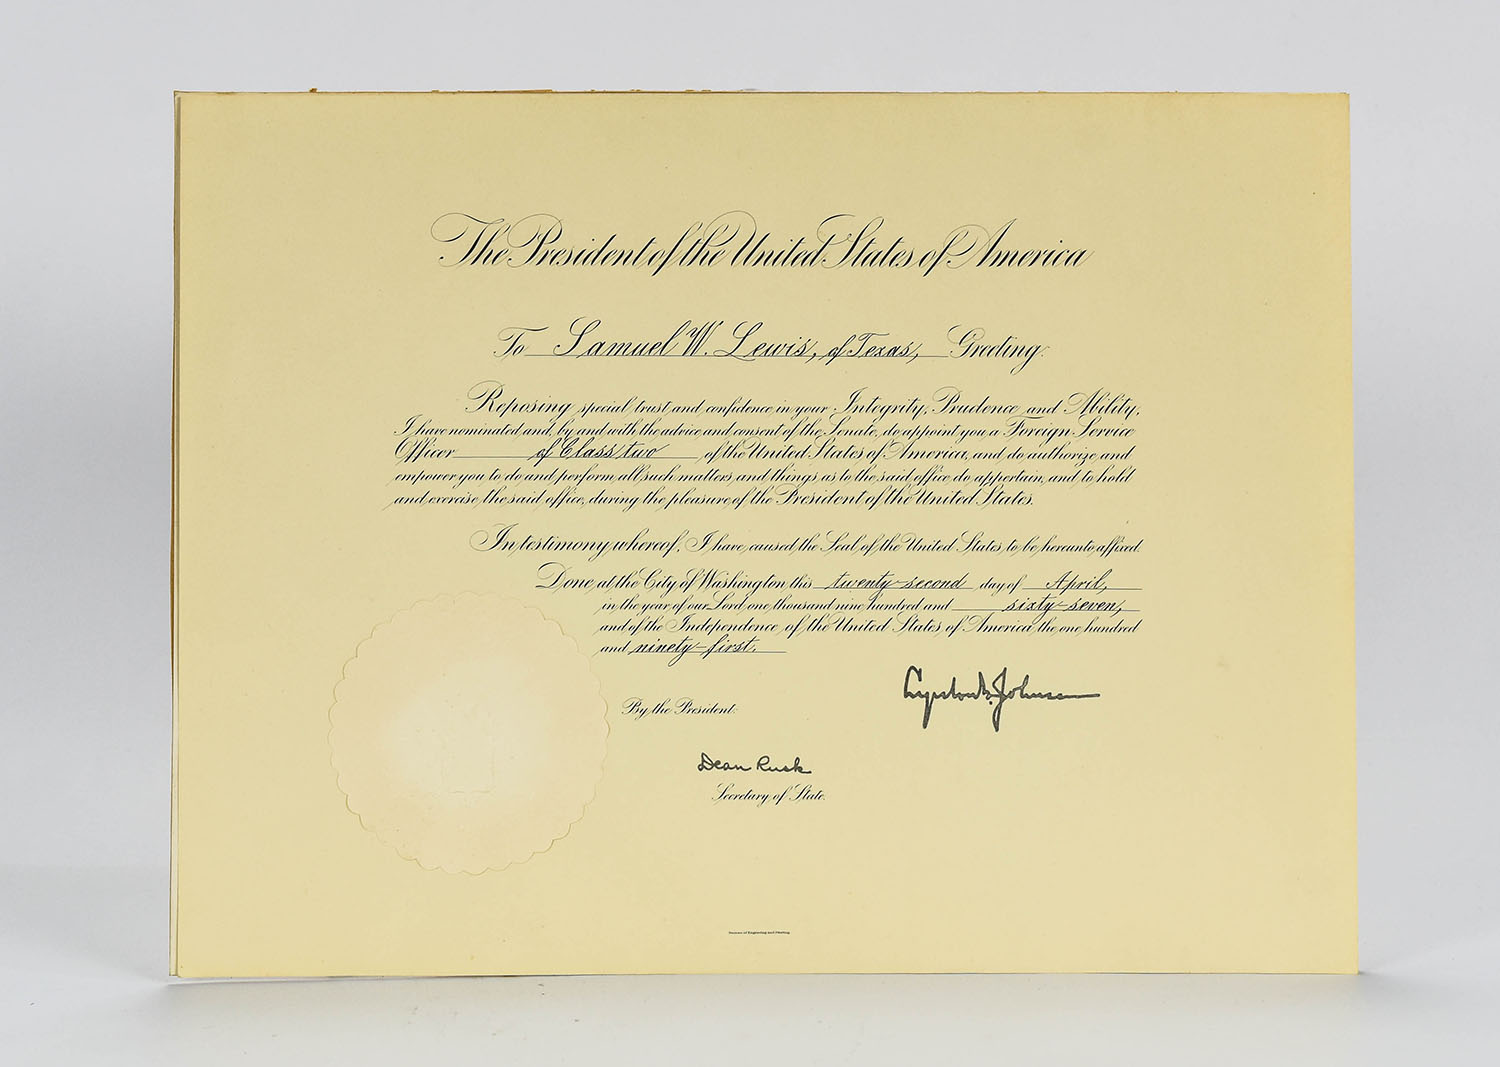 The President of the United States of America
To Samuel W. Lewis, of Texas, Greeting:
Reposing special trust and confidence in your Integrity, Prudence and Ability,
I have nominated and, by and with the advice and consent of the Senate, do appoint you a Foreign Service
Officer of Class two of the United States of America, and do authorize and
empower you to do and perform all such matters and things as to the said office do appertain, and to hold
and exercise the said office, during the pleasure of the President of the United States.
In testimony whereof, I have caused the Seal of the United States to be hereunto affixed.
Done at the City of Washington this twenty-second day of April,
in the year of our Lord one thousand nine hundred and sixty-seven,
and of the Independence of the United States of America the one hundred
and ninety-first.
Lyndon B. Johnson
By the President:
Dean Rusk
Secretary of State.
Bureau of Engraving and Printing